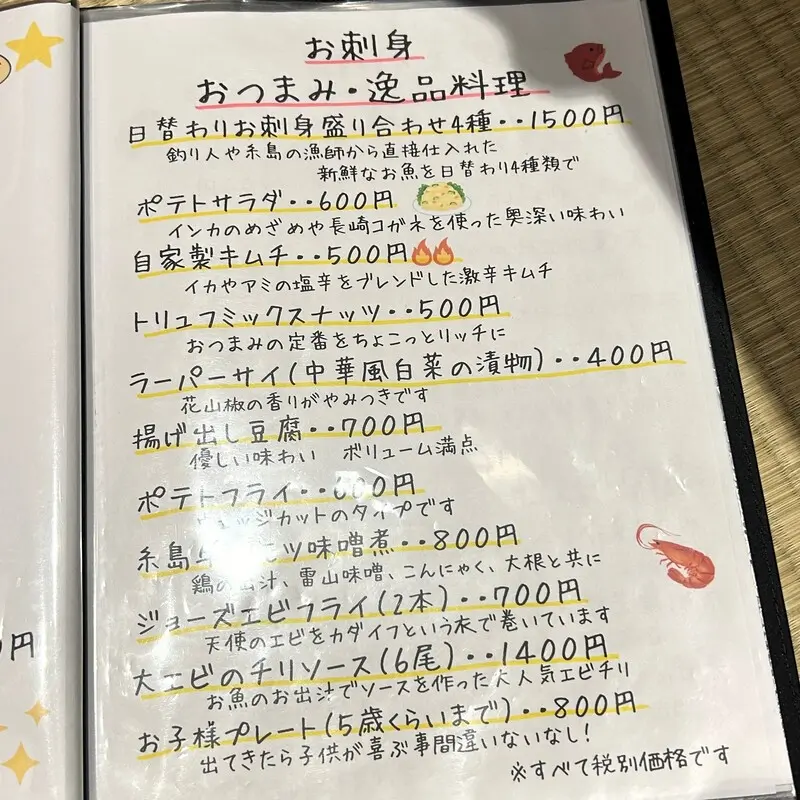 お刺身
おつまみ・逸品料理
日替わりお刺身盛り合わせ4種・・1500円
釣り人や糸島の漁師から直接仕入れた
新鮮なお魚を日替わり4種類で
ポテトサラダ・・600円
インカのめざめや長崎コガネを使った奥深い味わい
自家製キムチ・・500円
イカやアミの塩辛をブレンドした激辛キムチ
トリュフミックスナッツ・・500円
おつまみの定番をちょこっとリッチに
ラーパーサイ(中華風白菜の漬物)・・400円
花山椒の香りがやみつきです
揚げ出し豆腐・・700円
優しい味わい ボリューム満点
ポテトフライ・・600円
カットのタイプです
糸島 味噌煮・・800円
鶏の出汁、雷山味噌、こんにゃく、大根と共に
ジョーズエビフライ(2本)・・700円
天使のエビをカダイフという衣で巻いています
大エビのチリソース(6尾)・・1400円
お魚のお出汁でソースを作った大人気エビチリ
お子様プレート(5歳くらいまで)・・800円
出てきたら子供が喜ぶ事間違いないなし!
※すべて税別価格です
円